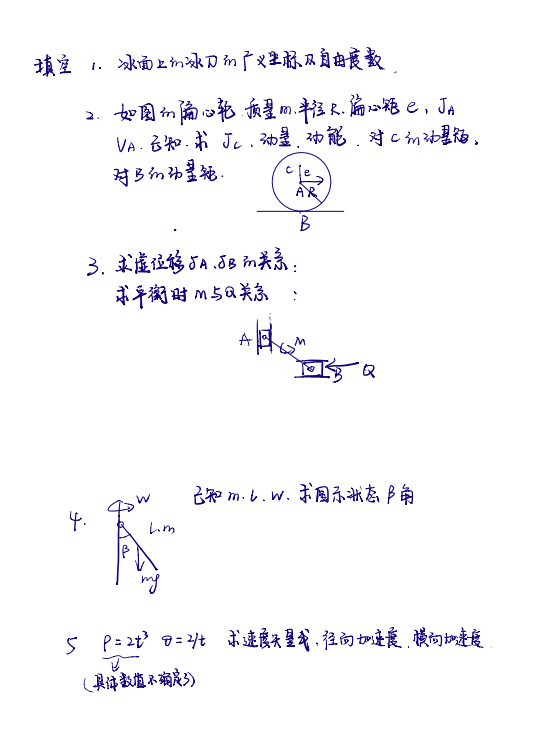 填空 1. 冰面上的冰刀的广义坐标及自由度数.
2. 如图的偏心轮.质量m.半径R.偏心距e, JA
VA.已知.求 JC.动量.动能.对C的动量矩.
对B的动量矩.
C e
A R
B
3. 求虚位移δA、δB的关系;
求平衡时M与Q关系 ;
A M
B Q
4. 已知m.L.W.求图示状态β角
W
L.m
β
mg
5 ρ=2t³ θ=2/t 求速度矢量式,径向加速度.横向加速度.
(具体数值不确定了)